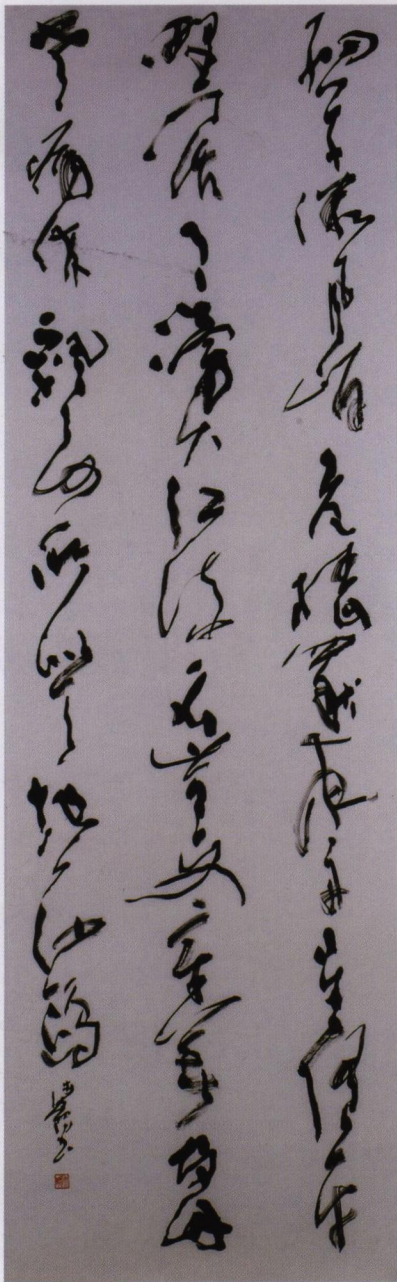 細草微風岸危檣獨夜舟星垂平
野闊月湧大江流名豈文章著官應
老病休飄飄何所似天地一沙鷗